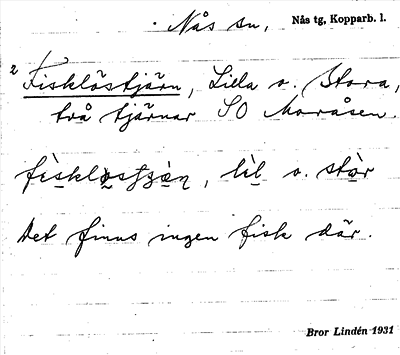 Nås sn, Nås tg, Kopparb. l.
2 Fisklöstjärn, Lilla o. Stora,
två tjärnar SO Moråsen.
lìl o. stòr
Det finns ingen fisk där.
Bror Lindén 1931